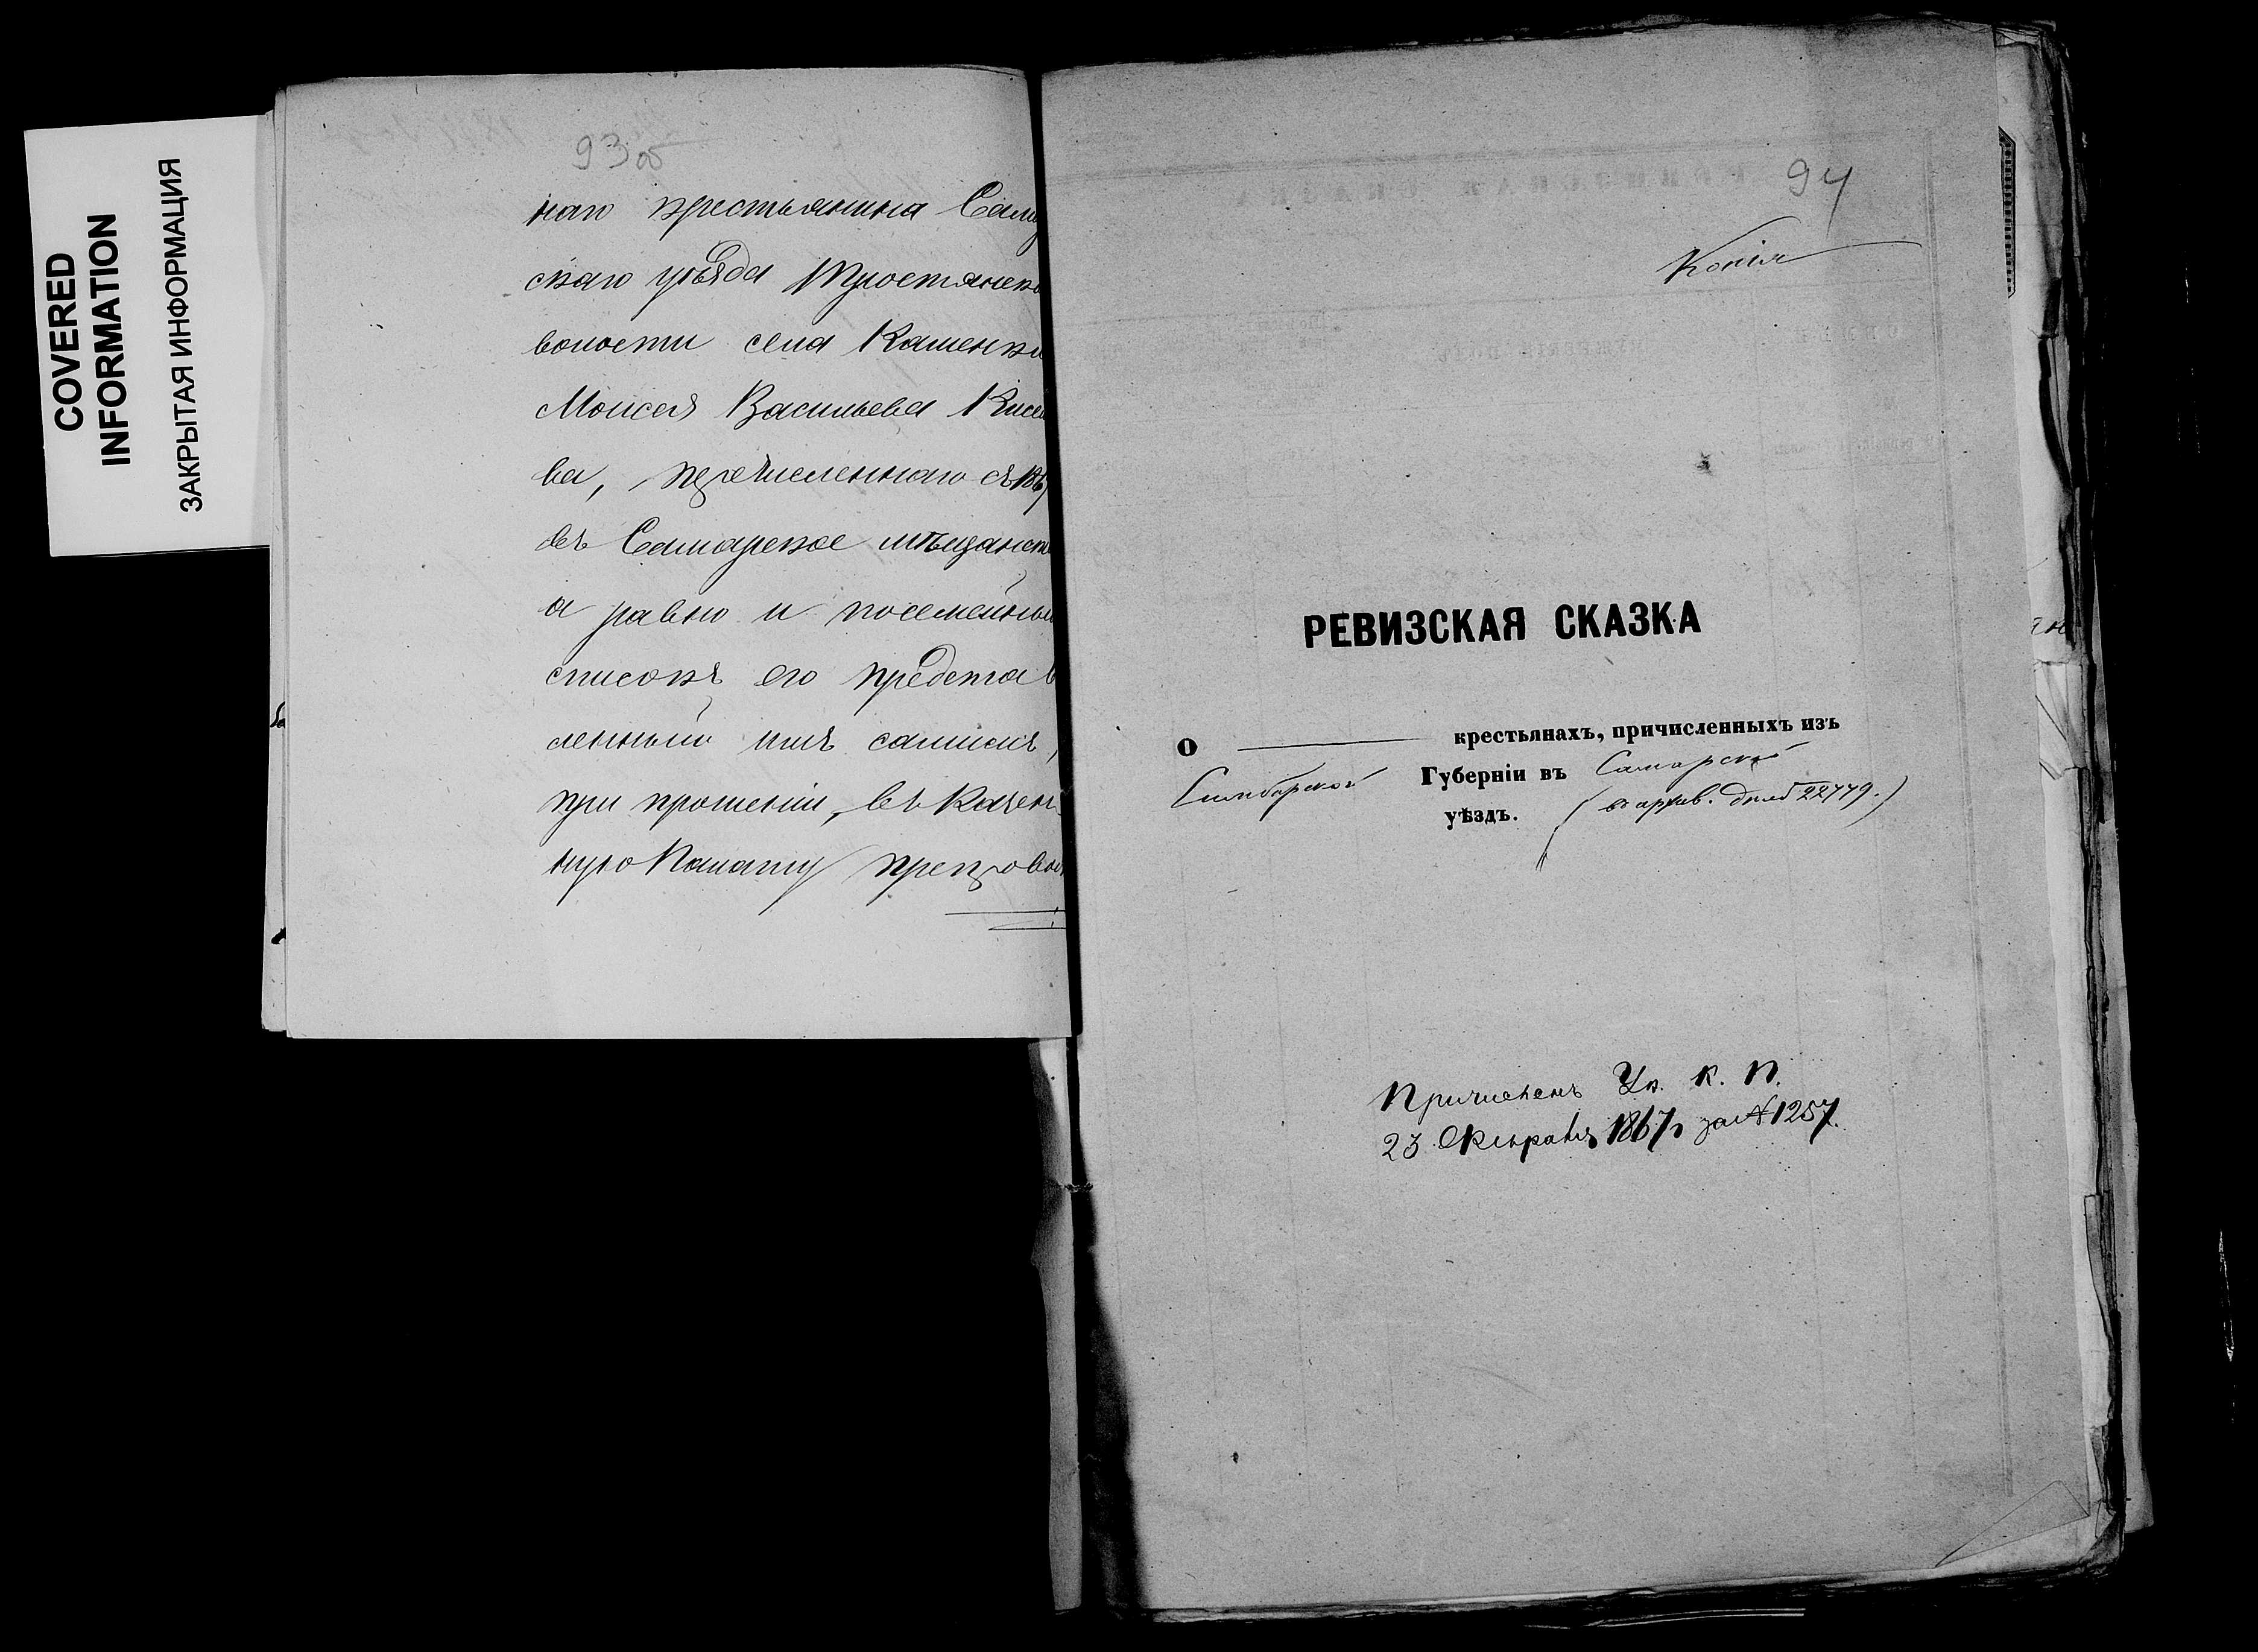 COVERED
INFORMATION
ЗАКРЫТАЯ ИНФОРМАЦИЯ
93об
наго крестьянина Сама
скаго уѣзда Тростянско
волости села Каменки
Моисея Васильева Кисел
ва, перечисленнаго съ 1867
въ Самарское мѣщанств
а равно и посемейный
списокъ его представ
ленный имъ самимъ,
при прошеніи, въ Казен
ную Палату препровож
94
Копія
РЕВИЗСКАЯ СКАЗКА
О крестьянахъ, причисленныхъ изъ
Симбирской Губерніи въ Самарской
уѣздъ. (въ архив. дѣлѣ 22779.)
Причисленъ Ук. К. П.
23 Февраля 1867 г. за № 1257.